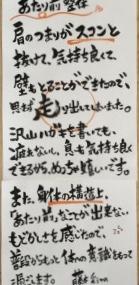 あたり前整体
肩のつまりがスコンと
抜けて、気持ち良くて
壁もとることができたので、
思わず走り出してしまいました。
沢山ハガキを書いても、
疲れないし、息も気持ち良く
できるから、めっちゃ嬉しいです。
また、身体の構造上、
"あたり前"なことが出来ない
もどかしさを感じたので、
普段からもっと体への意識をもって
過ごします。